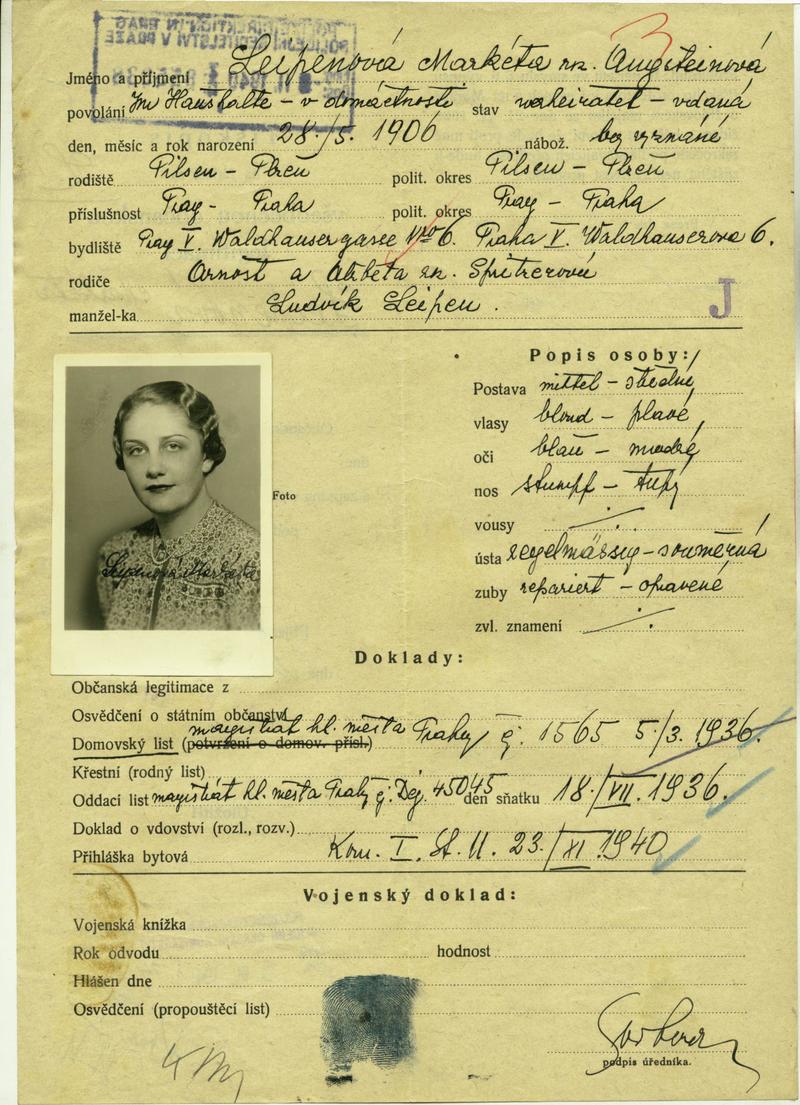 3
Jméno a příjmení Leipenová Markéta rz. Augsteinová
povolání Im Haushalte – v domácnosti stav verheiratet – vdaná
den, měsíc a rok narození 28./5. 1906 nábož. bez vyznání
rodiště Pilsen – Plzeň polit. okres Pilsen – Plzeň
příslušnost Prag – Praha polit. okres Prag – Praha
bydliště Prag V. Waldhausergasse Nro 6. Praha V. Waldhauserova 6.
rodiče Arnošt a Alžběta rz. Spitzerová
manžel-ka Ludvík Leipen.
J
Popis osoby:
Postava mittel – střední
vlasy blond – plavé
oči blau – modré
Foto
nos stumpf – tupý
vousy
ústa regelmässig – souměrná
zuby repariert – opravené
zvl. znamení
Leipenová Markéta
Doklady:
Občanská legitimace z
Osvědčení o státním občanství
magistrát hl. města Prahy č. 1565 5./3. 1936.
Domovský list (potvrzení o domov. přísl.)
Křestní (rodný list)
Oddací list magistrát hl. města Prahy č. Dej. 45045 den sňatku 18./VII. 1936.
Doklad o vdovství (rozl., rozv.)
Přihláška bytová Kom. I. St. U. 23./XI. 1940
Vojenský doklad:
Vojenská knížka
Rok odvodu hodnost
Hlášen dne
Osvědčení (propouštěcí list)
podpis úředníka.